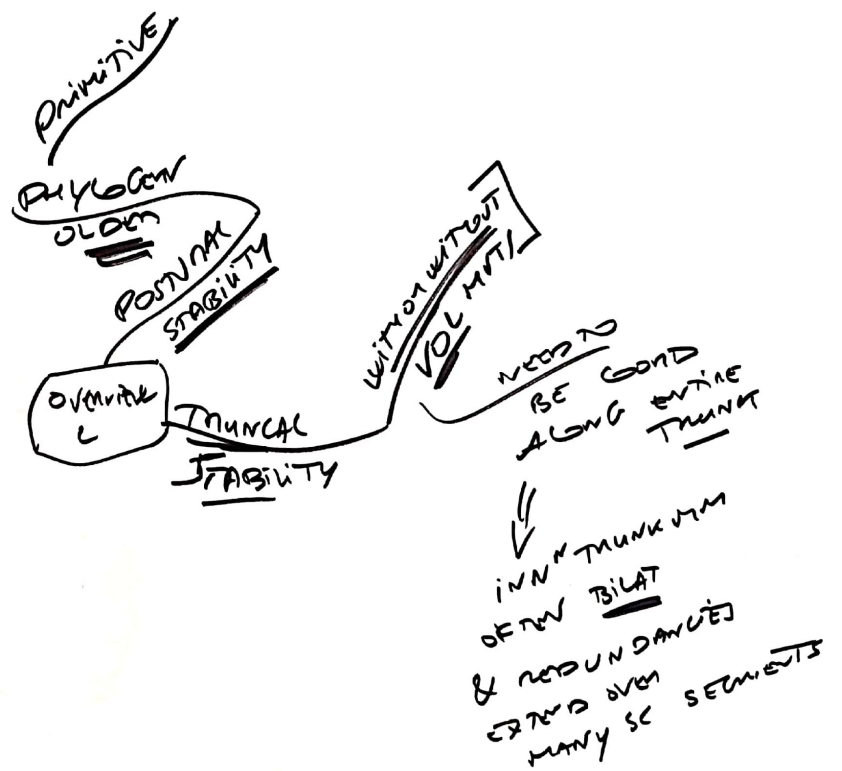 PRIMITIVE
PHYLOGEN
OLDER
POSTURAL
STABILITY
OVERVIEW
TRUNCAL
STABILITY
WITH OR WITHOUT
VOL MVTS
NEED TO
BE COORD
ALONG ENTIRE
TRUNK
⇓
INNN TRUNK MM
OFTEN BILAT
& REDUNDANCIES
EXTEND OVER
MANY SC SEGMENTS